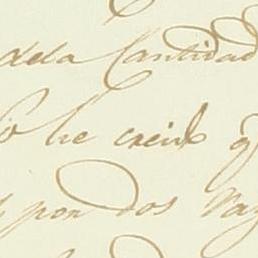 dela Cantidad
he creido
por dos